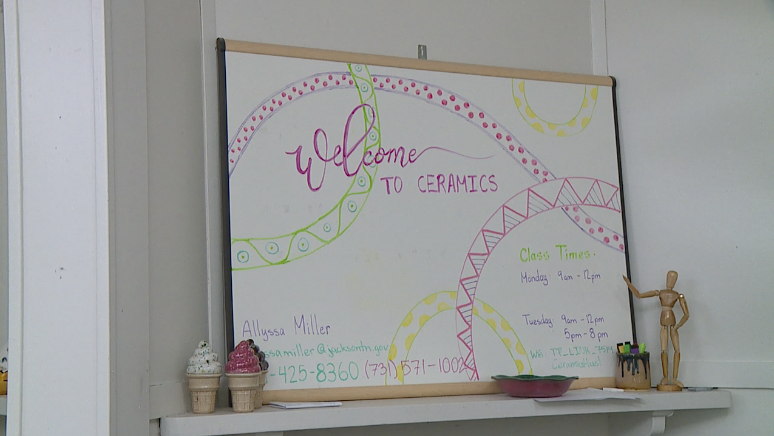 Welcome
TO CERAMICS
Class Times:
Monday: 9am - 12pm
Tuesday: 9am - 12pm
5pm - 8pm
Allyssa Miller
ssa.miller@jacksontn.gov
-425-8360 (731) 571-1002